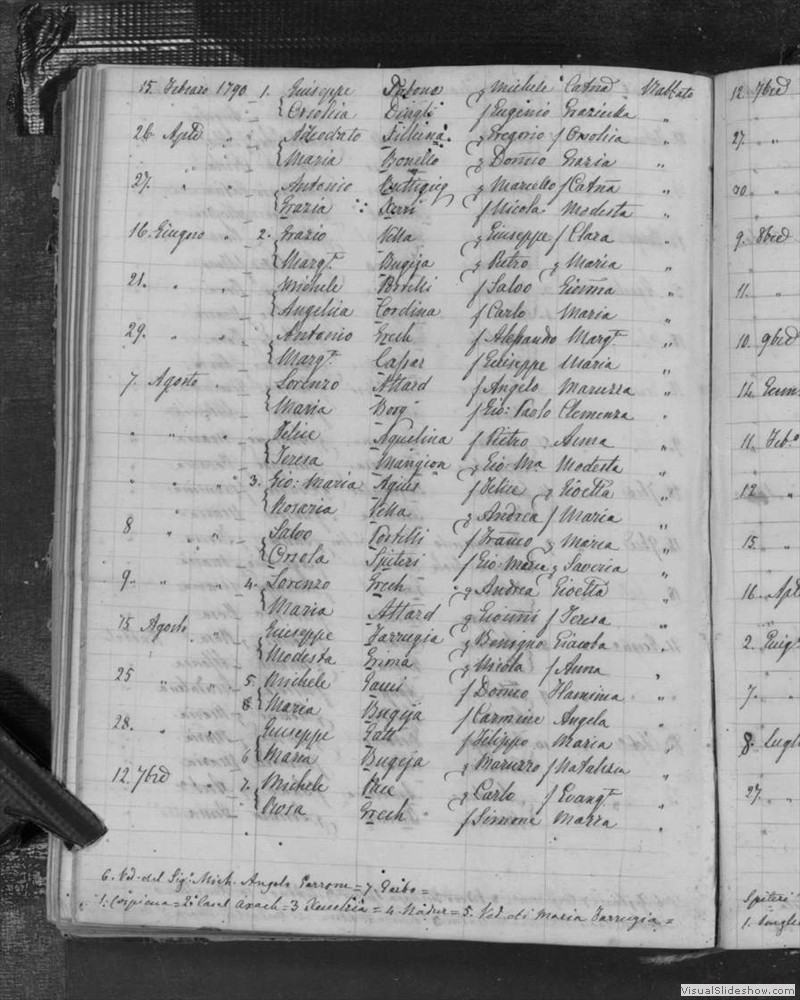 15 Febraro 1790 1. Giuseppe Debono q Michele Catnā Rabbato
Orsolia Dingli f Eugenio Grazietta "
26 Aple " Azeodrato q Gregorio f Orsolia "
Maria Bonello q Domco Grazia "
27. " " Antonio Buttigieg q Marcello f Catnā "
Grazia f Nicola Modesta "
16 Giugno " 2. Grazio Vella q Giuseppe f Clara "
Margta Bugeja q Pietro q Maria "
21. " " Michele Portelli f Salvo Gionna "
Angelica Cordina f Carlo Maria "
29. " " Antonio Grech f Alessandro Margta "
Margta Caspar f Giuseppe Maria "
7. Agosto " Lorenzo Attard f Angelo Maruzza "
Maria Borg f Gio: Paolo Clemenza "
" " " Felice Aquilina f Pietro Anna "
Teresa Mangion q Gio: Ma Modesta "
" " " 3. Gio: Maria Agius f Felice q Gioetta "
Rosaria Vella q Andrea f Maria "
8 " " Salvo Portelli f Franco q Maria "
Orsola Spiteri f Gio: Maria q Saveria "
9. " " 4. Lorenzo Grech q Andrea Gioetta "
Maria Attard q Gionni f Teresa "
15 Agosto " Giuseppe Farrugia q Benigno Giacoba "
Modesta Grima q Nicola f Anna "
25 " " 5. Michele Gauci f Domco Flaminia "
8. Maria Bugeja f Carmine Angela "
28. " Giuseppe Gatt f Filippo Maria "
6 Maria Bugeja q Maruzzo f Natalizia "
12. 7bre 7. Michele q Carlo f Evangta "
Rosa Grech f Simone Maria "
6. Ved. del Sigr Mich. Angelo Perrone = 7. Gaibo =
1. Cospicua = 2. Casal Axach = 3. Xeuchia = 4. Nadur = 5. Ved. di Maria Farrugia =
12. 7bre
27. "
30. "
9. 8bre
11. "
10. 9bre
14.
11. Feb.o
12 "
15. "
16. Aple
2.
7. "
8. Luglio
27. "
Spiteri
1.
VisualSlideshow.com